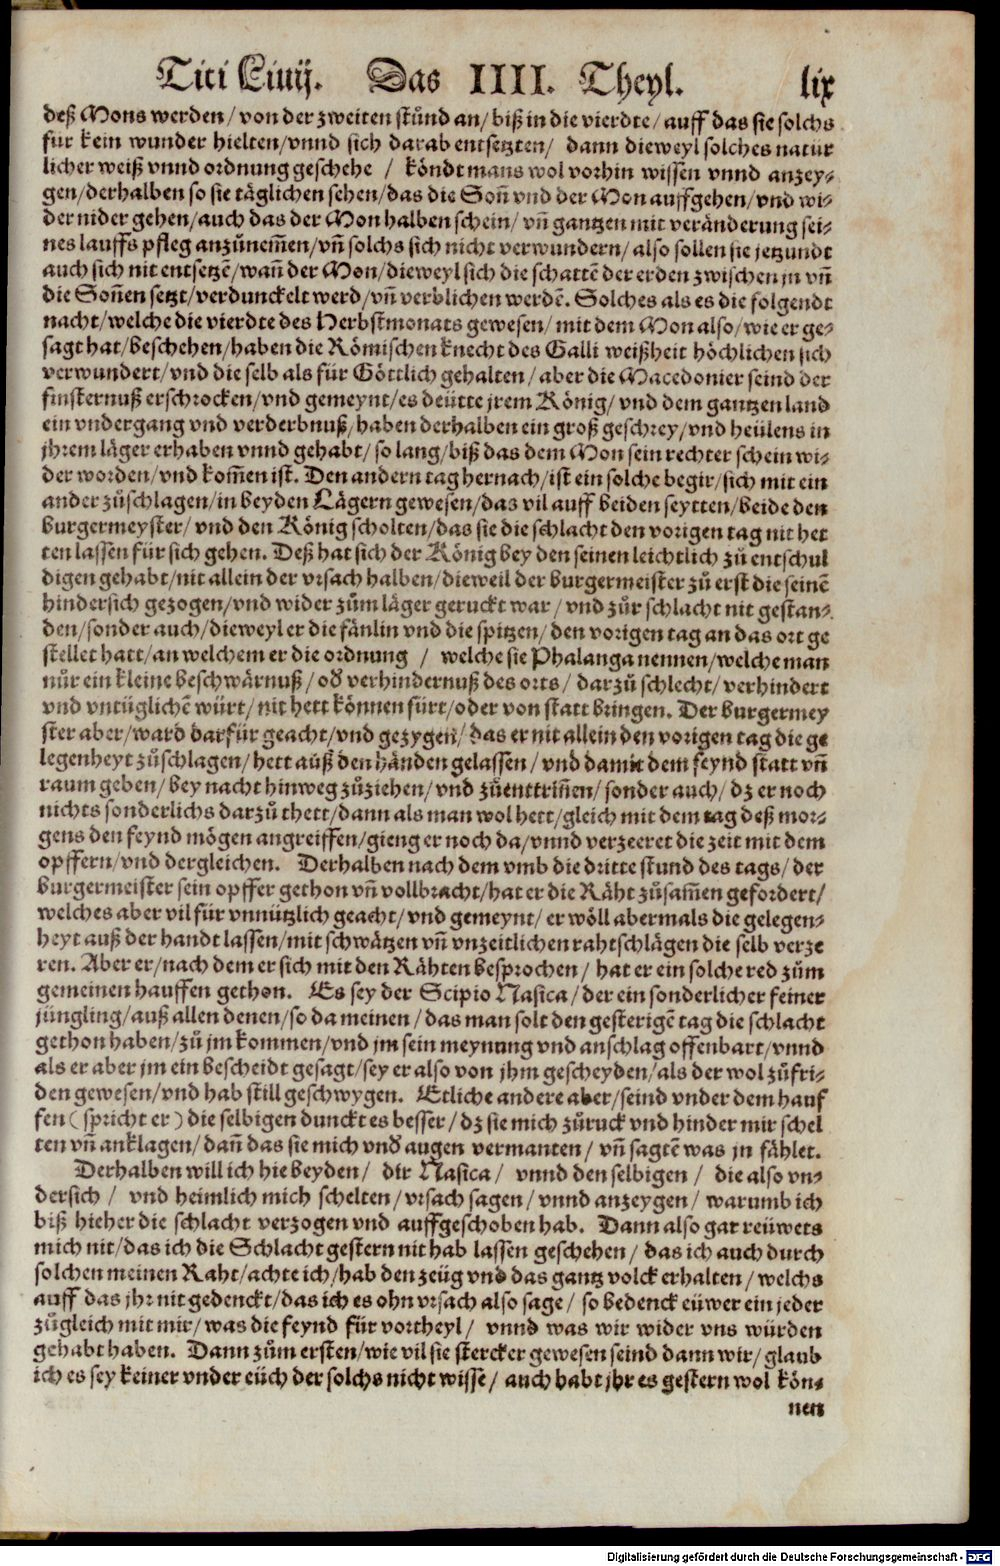 Titi Liuij. Das IIII. Theyl. lix
deß Mons werden / von der zweiten stůnd an / biß in die vierdte / auff das sie solchs
für kein wunder hielten / vnnd sich darab entsetzten / dann dieweyl solches natür
licher weiß vnnd ordnung geschehe / köndt mans wol vorhin wissen vnnd anzey⸗
gen / derhalben so sie täglichen sehen / das die Soñ vnd der Mon auffgehen / vnd wi⸗
der nider gehen / auch das der Mon halben schein / vñ gantzen mit veränderung sei⸗
nes lauffs pfleg anzůnem̃en / vñ solchs sich nicht verwundern / also sollen sie jetzundt
auch sich nit entsetzē / wañ der Mon / dieweyl sich die schattē der erden zwischen jn vñ
die Soñen setzt / verdunckelt werd / vñ verblichen werdē. Solches als es die folgendt
nacht / welche die vierdte des Herbstmonats gewesen / mit dem Mon also / wie er ge⸗
sagt hat / beschehen / haben die Römischen knecht des Galli weißheit höchlichen sich
verwundert / vnd die selb als für Göttlich gehalten / aber die Macedonier seind der
finsternuß erschrocken / vnd gemeynt / es deütte jrem König / vnd dem gantzen land
ein vndergang vnd verderbnuß / haben derhalben ein groß geschrey / vnd heülens in
jhrem läger erhaben vnnd gehabt / so lang / biß das dem Mon sein rechter schein wi⸗
der worden / vnd kom̃en ist. Den andern tag hernach / ist ein solche begir / sich mit ein
ander zůschlagen / in beyden Lägern gewesen / das vil auff beiden seytten / beide den
burgermeyster / vnd den König scholten / das sie die schlacht den vorigen tag nit het
ten lassen für sich gehen. Deß hat sich der König bey den seinen leichtlich zů entschul
digen gehabt / nit allein der vrsach halben / dieweil der burgermeister zů erst die seinē
hindersich gezogen / vnd wider zům läger geruckt war / vnd zůr schlacht nit gestan⸗
den / sonder auch / dieweyl er die fänlin vnd die spitzen / den vorigen tag an das ort ge
stellet hatt / an welchem er die ordnung / welche sie Phalanga nennen / welche man
nůr ein kleine beschwärnuß / oď verhindernuß des orts / darzů schlecht / verhindert
vnd vntüglichē würt / nit hett können fürt / oder von statt bringen. Der burgermey
ster aber / ward darfür geacht / vnd gezygen / das er nit allein den vorigen tag die ge
legenheyt zůschlagen / hett auß den händen gelassen / vnd damit dem feynd statt vñ
raum geben / bey nacht hinweg zůziehen / vnd zůenttrin̄en / sonder auch / dz er noch
nichts sonderlichs darzů thett / dann als man wol hett / gleich mit dem tag deß mor⸗
gens den feynd mögen angreiffen / gieng er noch da / vnnd verzeeret die zeit mit dem
opffern / vnd dergleichen. Derhalben nach dem vmb die dritte stund des tags / der
burgermeister sein opffer gethon vñ vollbracht / hat er die Räht zůsam̃en gefordert /
welches aber vil für vnnützlich geacht / vnd gemeynt / er wöll abermals die gelegen⸗
heyt auß der handt lassen / mit schwätzen vñ vnzeitlichen rahtschlägen die selb verze
ren. Aber er / nach dem er sich mit den Rähten besprochen / hat er ein solche red zům
gemeinen hauffen gethon. Es sey der Scipio Nasica / der ein sonderlicher feiner
jüngling / auß allen denen / so da meinen / das man solt den gesterigē tag die schlacht
gethon haben / zů jm kommen / vnd jm sein meynung vnd anschlag offenbart / vnnd
als er aber jm ein bescheidt gesagt / sey er also von jhm gescheyden / als der wol zůfri⸗
den gewesen / vnd hab still geschwygen. Etliche andere aber / seind vnder dem hauf
fen (spricht er) die selbigen dunckt es besser / dz sie mich zůruck vnd hinder mir schel
ten vñ anklagen / dañ das sie mich vnď augen vermanten / vñ sagtē was jn fählet.
Derhalben will ich hie beyden / dir Nasica / vnnd den selbigen / die also vn⸗
dersich / vnd heimlich mich schelten / vrsach sagen / vnnd anzeygen / warumb ich
biß hieher die schlacht verzogen vnd auffgeschoben hab. Dann also gar reüwets
mich nit / das ich die Schlacht gestern nit hab lassen geschehen / das ich auch durch
solchen meinen Raht / achte ich / hab den zeüg vnd das gantz volck erhalten / welchs
auff das jhr nit gedenckt / das ich es ohn vrsach also sage / so bedenck eüwer ein jeder
zůgleich mit mir / was die feynd für vortheyl / vnnd was wir wider vns würden
gehabt haben. Dann zům ersten / wie vil sie stercker gewesen seind dann wir / glaub
ich es sey keiner vnder eüch der solchs nicht wisse / auch habt jhr es gestern wol kön⸗
nen
Digitalisierung gefördert durch die Deutsche Forschungsgemeinschaft - DFG